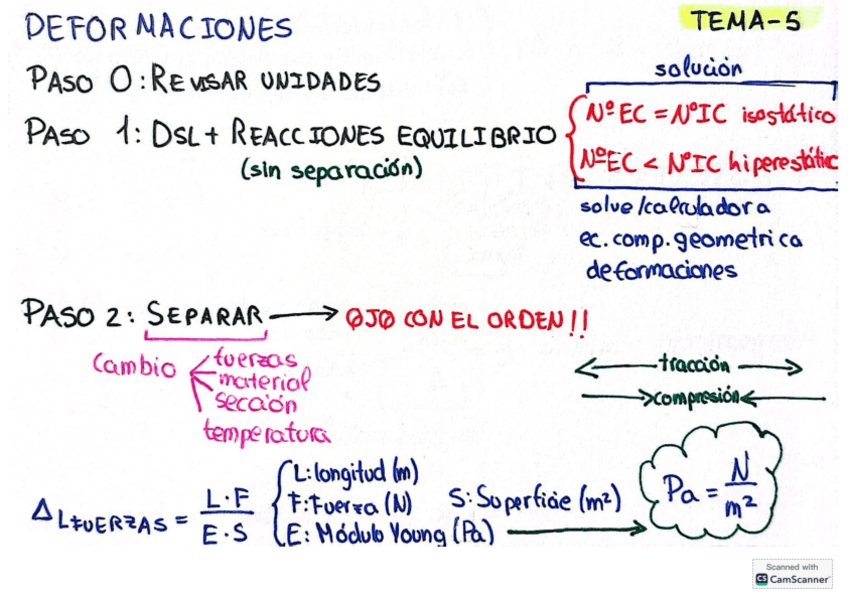 DEFORMACIONES
TEMA-5
PASO 0: REVISAR UNIDADES
solución
PASO 1: DSL + REACCIONES EQUILIBRIO
(sin separación)
NºEC = NºIC isostático
NºEC < NºIC hiperestátic
solve/calculadora
ec. comp. geometrica
deformaciones
PASO 2: SEPARAR → OJO CON EL ORDEN!!
Cambio
fuerzas
material
sección
temperatura
tracción
compresión
Δ LFUERZAS = L·F / E·S
L: longitud (m)
F: Fuerza (N)
E: Módulo Young (Pa)
S: Superficie (m²)
Pa = N / m²
Scanned with
CS CamScanner